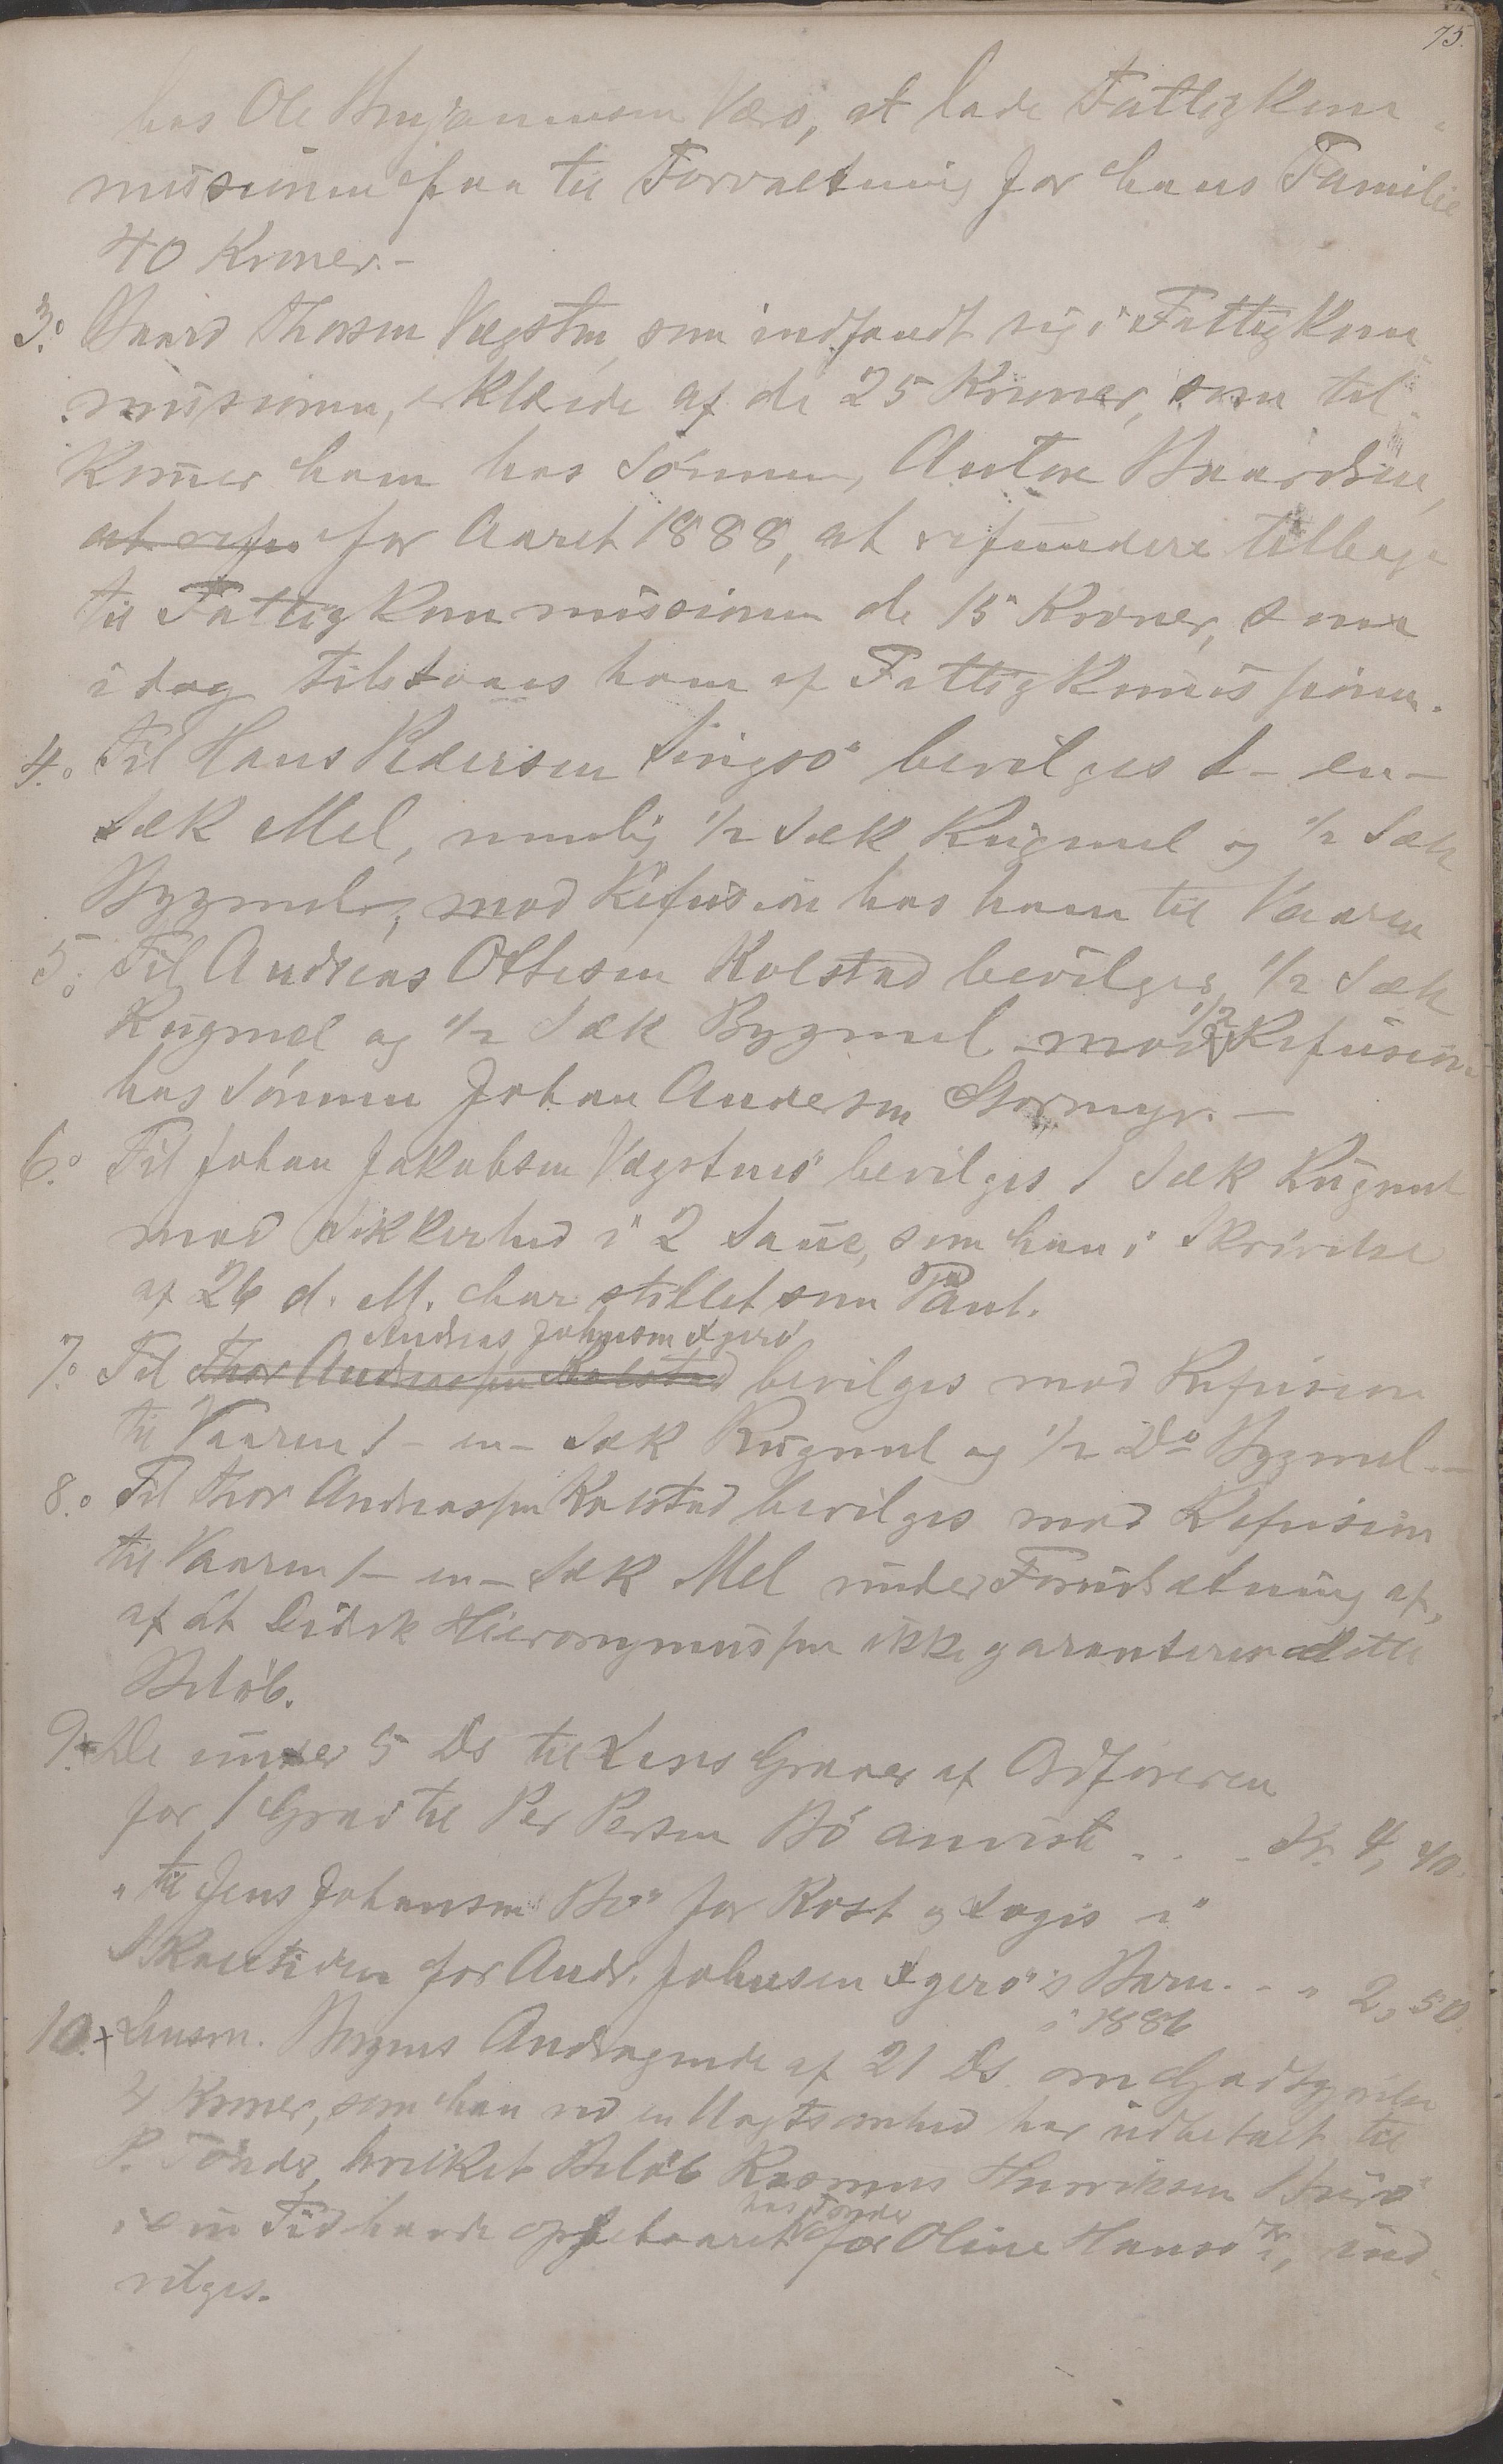 75.
hos Ole Benjaminsen Værø, at lade Fattigkom-
missionen faa til Forvaltning for hans Familie
40 Kroner.-
3.o Baard Thorsen Vægstnæs, som indfandt sig i Fattigkom-
missionen, erklærede af de 25 Kroner, som til-
kommer ham hos Sønnen, Anton Baardsen,
at refu for Aaret 1888, at refundere tilbage
til Fattigkommissionen de 15 Kroner, som
idag tilstaaes ham af Fattigkommissionen.
4.o Til Hans Pedersen Lingsø bevilges 1 - en -
Sæk Mel, nemlig 1/2 Sæk Rugmel og 1/2 Sæk
Bygmel, mod Refusion hos ham til Vaaren
5.o Til Andreas Ottesen Kolstad bevilges 1/2 Sæk
Rugmel og 1/2 Sæk Bygmel mod 1/2 Refusion
hos Sønnen Johan Andersen Stormyr. -
6.o Til Johan Jakobsen Vægstnæs bevilges 1 Sæk Rugmel
mod Sikkerhed i 2 Sauer, som han i Skrivelse
af 26 d. M. har stillet som Pant.
Andreas Johnsen Agerø
7.o Til Thor Andreassen Kolstad bevilges mod Refusion
til Vaaren 1 - en - Sæk Rugmel og 1/2 Do Bygmel. -
8.o Til Thor Andreassen Kolstad bevilges mod Refusion
til Vaaren 1 - en - Sæk Mel under Forudsætning af,
af at Didrik Hieronymussen ikke garanterer dette
Beløb.
9. De under 5 Ds til af Ordføreren
for 1 Grav til Per Persen Bø anviste . . - Kr. 4,40.
" til Jens Johansen Bø for Kost og Logis i
Skoletiden for Andr. Johnsen Agerø's Barn. - " 2,50.
i 1886
10. + Lensm. Andragende af 21 Ds om Godtgjørelse
4 Kroner, som han ved en Uagtsomhed har udbetalt til
P. Tønder, hvilket Beløb Rasmus Henriksen
hos Tønder
i sin Tid havde oppebaaret for Oline Hansdtr, ind-
vilges.